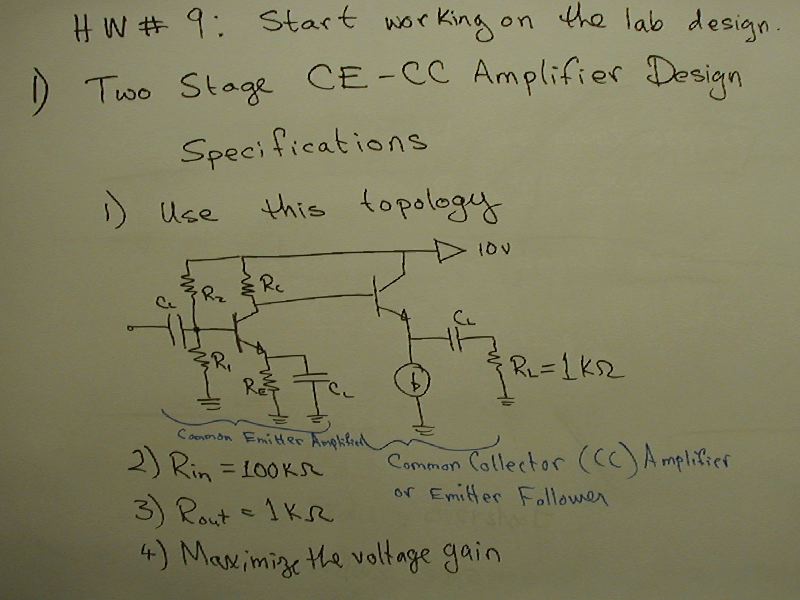 HW # 9: Start working on the lab design.
1) Two Stage CE-CC Amplifier Design
Specifications
1) Use this topology
10V
R2
Rc
CL
CL
R1
RE
CL
RL = 1KΩ
Common Emitter Amplified
2) Rin = 100KΩ
Common Collector (CC) Amplifier
or Emitter Follower
3) Rout = 1KΩ
4) Maximize the voltage gain